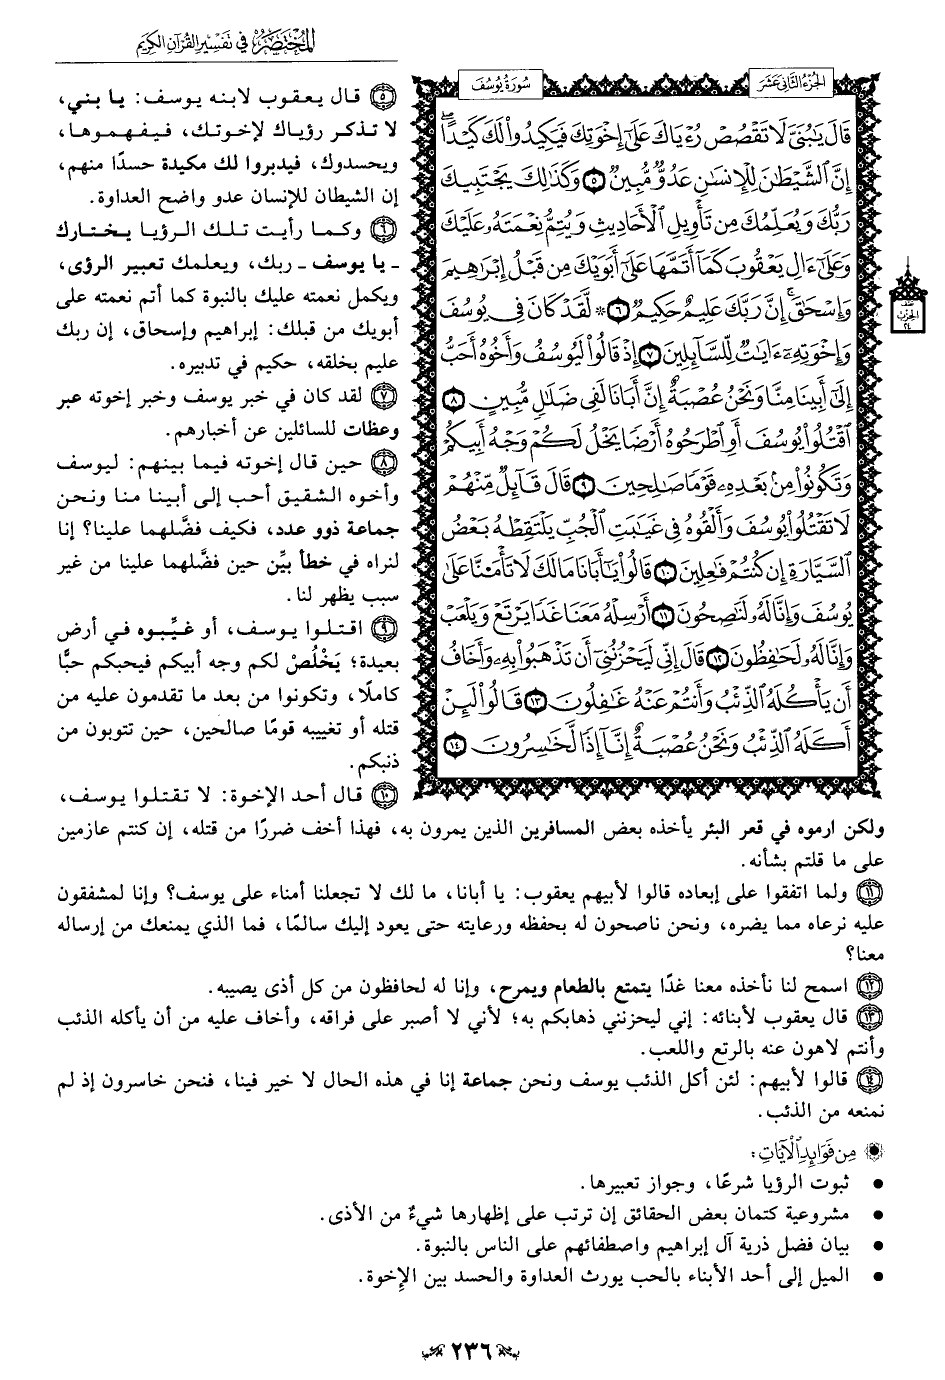 المُخْتَصَرُ في تَفْسِيرِ القُرْآنِ الكَرِيمِ
الجُزْءُ الثَّانِي عَشَرَ
سُورَةُ يُوسُفَ
قَالَ يَٰبُنَيَّ لَا تَقْصُصْ رُءْيَاكَ عَلَىٰٓ إِخْوَتِكَ فَيَكِيدُوا۟ لَكَ كَيْدًا ۖ
إِنَّ ٱلشَّيْطَٰنَ لِلْإِنسَٰنِ عَدُوٌّ مُّبِينٌ ٥ وَكَذَٰلِكَ يَجْتَبِيكَ
رَبُّكَ وَيُعَلِّمُكَ مِن تَأْوِيلِ ٱلْأَحَادِيثِ وَيُتِمُّ نِعْمَتَهُۥ عَلَيْكَ
وَعَلَىٰٓ ءَالِ يَعْقُوبَ كَمَآ أَتَمَّهَا عَلَىٰٓ أَبَوَيْكَ مِن قَبْلُ إِبْرَٰهِيمَ
وَإِسْحَٰقَ ۚ إِنَّ رَبَّكَ عَلِيمٌ حَكِيمٌ ٦ * لَّقَدْ كَانَ فِى يُوسُفَ
وَإِخْوَتِهِۦٓ ءَايَٰتٌ لِّلسَّآئِلِينَ ٧ إِذْ قَالُوا۟ لَيُوسُفُ وَأَخُوهُ أَحَبُّ
إِلَىٰٓ أَبِينَا مِنَّا وَنَحْنُ عُصْبَةٌ إِنَّ أَبَانَا لَفِى ضَلَٰلٍ مُّبِينٍ ٨
ٱقْتُلُوا۟ يُوسُفَ أَوِ ٱطْرَحُوهُ أَرْضًا يَخْلُ لَكُمْ وَجْهُ أَبِيكُمْ
وَتَكُونُوا۟ مِنۢ بَعْدِهِۦ قَوْمًا صَٰلِحِينَ ٩ قَالَ قَآئِلٌ مِّنْهُمْ
لَا تَقْتُلُوا۟ يُوسُفَ وَأَلْقُوهُ فِى غَيَٰبَتِ ٱلْجُبِّ يَلْتَقِطْهُ بَعْضُ
ٱلسَّيَّارَةِ إِن كُنتُمْ فَٰعِلِينَ ١٠ قَالُوا۟ يَٰٓأَبَانَا مَا لَكَ لَا تَأْمَ۫نَّا عَلَىٰ
يُوسُفَ وَإِنَّا لَهُۥ لَنَٰصِحُونَ ١١ أَرْسِلْهُ مَعَنَا غَدًا يَرْتَعْ وَيَلْعَبْ
وَإِنَّا لَهُۥ لَحَٰفِظُونَ ١٢ قَالَ إِنِّى لَيَحْزُنُنِىٓ أَن تَذْهَبُوا۟ بِهِۦ وَأَخَافُ
أَن يَأْكُلَهُ ٱلذِّئْبُ وَأَنتُمْ عَنْهُ غَٰفِلُونَ ١٣ قَالُوا۟ لَئِنْ
أَكَلَهُ ٱلذِّئْبُ وَنَحْنُ عُصْبَةٌ إِنَّآ إِذًا لَّخَٰسِرُونَ ١٤
نصف
الحزب
٢٤
٥ قال يعقوب لابنه يوسف: يا بني،
لا تذكر رؤياك لإخوتك، فيفهموها،
ويحسدوك، فيدبروا لك مكيدة حسدًا منهم،
إن الشيطان للإنسان عدو واضح العداوة.
٦ وكما رأيت تلك الرؤيا يختارك
ـ يا يوسف ـ ربك، ويعلمك تعبير الرؤى،
ويكمل نعمته عليك بالنبوة كما أتم نعمته على
أبويك من قبلك: إبراهيم وإسحاق، إن ربك
عليم بخلقه، حكيم في تدبيره.
٧ لقد كان في خبر يوسف وخبر إخوته عبر
وعظات للسائلين عن أخبارهم.
٨ حين قال إخوته فيما بينهم: ليوسف
وأخوه الشقيق أحب إلى أبينا منا ونحن
جماعة ذوو عدد، فكيف فضَّلهما علينا؟ إنا
لنراه في خطأ بيِّن حين فضَّلهما علينا من غير
سبب يظهر لنا.
٩ اقتلوا يوسف، أو غيِّبوه في أرض
بعيدة؛ يَخْلُصْ لكم وجه أبيكم فيحبكم حبًّا
كاملًا، وتكونوا من بعد ما تقدمون عليه من
قتله أو تغييبه قومًا صالحين، حين تتوبون من
ذنبكم.
١٠ قال أحد الإخوة: لا تقتلوا يوسف،
ولكن ارموه في قعر البئر يأخذه بعض المسافرين الذين يمرون به، فهذا أخف ضررًا من قتله، إن كنتم عازمين
على ما قلتم بشأنه.
١١ ولما اتفقوا على إبعاده قالوا لأبيهم يعقوب: يا أبانا، ما لك لا تجعلنا أمناء على يوسف؟ وإنا لمشفقون
عليه نرعاه مما يضره، ونحن ناصحون له بحفظه ورعايته حتى يعود إليك سالمًا، فما الذي يمنعك من إرساله
معنا؟
١٢ اسمح لنا نأخذه معنا غدًا يتمتع بالطعام ويمرح، وإنا له لحافظون من كل أذى يصيبه.
١٣ قال يعقوب لأبنائه: إني ليحزنني ذهابكم به؛ لأني لا أصبر على فراقه، وأخاف عليه من أن يأكله الذئب
وأنتم لاهون عنه بالرتع واللعب.
١٤ قالوا لأبيهم: لئن أكل الذئب يوسف ونحن جماعة إنا في هذه الحال لا خير فينا، فنحن خاسرون إذ لم
نمنعه من الذئب.
مِن فَوَائِدِ الْآيَاتِ:
● ثبوت الرؤيا شرعًا، وجواز تعبيرها.
● مشروعية كتمان بعض الحقائق إن ترتب على إظهارها شيءٌ من الأذى.
● بيان فضل ذرية آل إبراهيم واصطفائهم على الناس بالنبوة.
● الميل إلى أحد الأبناء بالحب يورث العداوة والحسد بين الإخوة.
٢٣٦